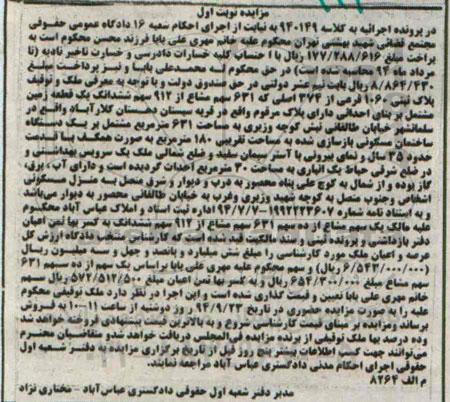 مزایده نوبت اول
در پرونده اجرائیه به کلاسه ۹۴۰۱۴۹ به نیابت از اجرای احکام شعبه ۱۶ دادگاه عمومی حقوقی
مجتمع قضائی شهید بهشتی تهران محکوم علیه خانم مهری علی بابا فرزند محسن محکوم است به
پراخت مبلغ ۱۷۷/۲۸۸/۶۱۶ ریال با احتساب کلیه خسارات دادرسی و خسارت تاخیر تادیه (تا
مرداد ماه ۹۴ محاسبه شده است) در حق محکوم له محمدعلی بابایا و نیز پرداخت مبلغ
۸/۸۶۴/۴۳۰ ریال بابت نیم عشر دولتی در حق صندوق دولت و با توجه به معرفی ملک و توقیف
پلاک ثبتی ۱۰۶۰ فرعی از ۳۷۴ اصلی که ۶۳۱ سهم مشاع از ۹۱۲ سهم ششدانگ یک قطعه زمین
مشتمل بر بنای احداثی دارای پلاک مرقوم واقع در قریه سیستان دهستان کلارآباد واقع در
سلمانشهر خیابان طالقانی نبش کوچه وزیری به مساحت ۶۳۱ مترمربع مشتمل بر یک دستگاه
ساختمان مسکونی بازسازی شده به مساحت تقریبی ۱۸۰ مترمربع به صورت همکف با قدمت
حدود ۳۵ سال و نمای بیرونی با آستر سیمان سفید و ضلع شمالی ملک یک سرویس بهداشتی و
در ضلع شرقی حیاط یک انباری به مساحت ۳۰ مترمربع احداث گردیده است و دارای آب، برق،
گاز بوده و از شمال به کوچ علی پناه محصور به درب و دیوار و شرق متصل به منزل مسکونی
اشخاص وجنوب متصل به کوچه شهید وزیری وغرب به خیابان طالقانی محصور به دیوار می باشد
و به استناد نامه شماره ۱۹۹۲۲۲۳۶۰۷-۹۴/۷/۷ اداره ثبت اسناد و املاک عباس آباد محکوم
علیه مالک یک سهم مشاع از ده سهم ۶۳۱ سهم مشاع از ۹۱۲ سهم ششدانگ به کسر بها ثمن اعیان
دفتر بازداشتی و پرونده ثبتی و سند مالکیت قید شده است که کارشناس منتخب دادگاه ارزش کل
عرصه و اعیان ملک مورد کارشناسی را مبلغ شش میلیارد و پانصد و چهل و سه میلیون ریال
(۶/۵۴۳/۰۰۰/۰۰۰ ریال) و سهم محکوم علیه مهری علی بابا براساس یک سهم از ده سهم ۶۳۱
سهم مشاع مبلغ ۶۵۴/۳۰۰/۰۰۰ ریال و به کسر بها ثمن اعیان مبلغ ۵۷۲/۵۱۲/۵۰۰ ریال سهم
خانم مهری علی بابا تعیین و قیمت گذاری شده است و این اجرا در نظر دارد ملک توقیفی محکوم
علیه را به صورت مزایده حضوری در تاریخ ۹۴/۹/۲۳ روز دوشنبه از ساعت ۱۰-۱۱ به فروش
برساند ومزایده بر مبنای قیمت کارشناسی شروع و به بالاترین قیمت پیشنهادی فروخته خواهد شد
وده درصد بها ملک توقیفی از برنده مزایده فی المجلس دریافت خواهد شدو متقاضیان محترم
می توانند جهت کسب اطلاعات بیشتر پنج روز قبل از تاریخ برگزاری مزایده به دفتر شعبه اول
حقوقی اجرای احکام مدنی دادگستری عباس آباد مراجعه نمایند.
م الف ۸۲۶۴
مدیر دفتر شعبه اول حقوقی دادگستری عباس آباد - مختاری نژاد